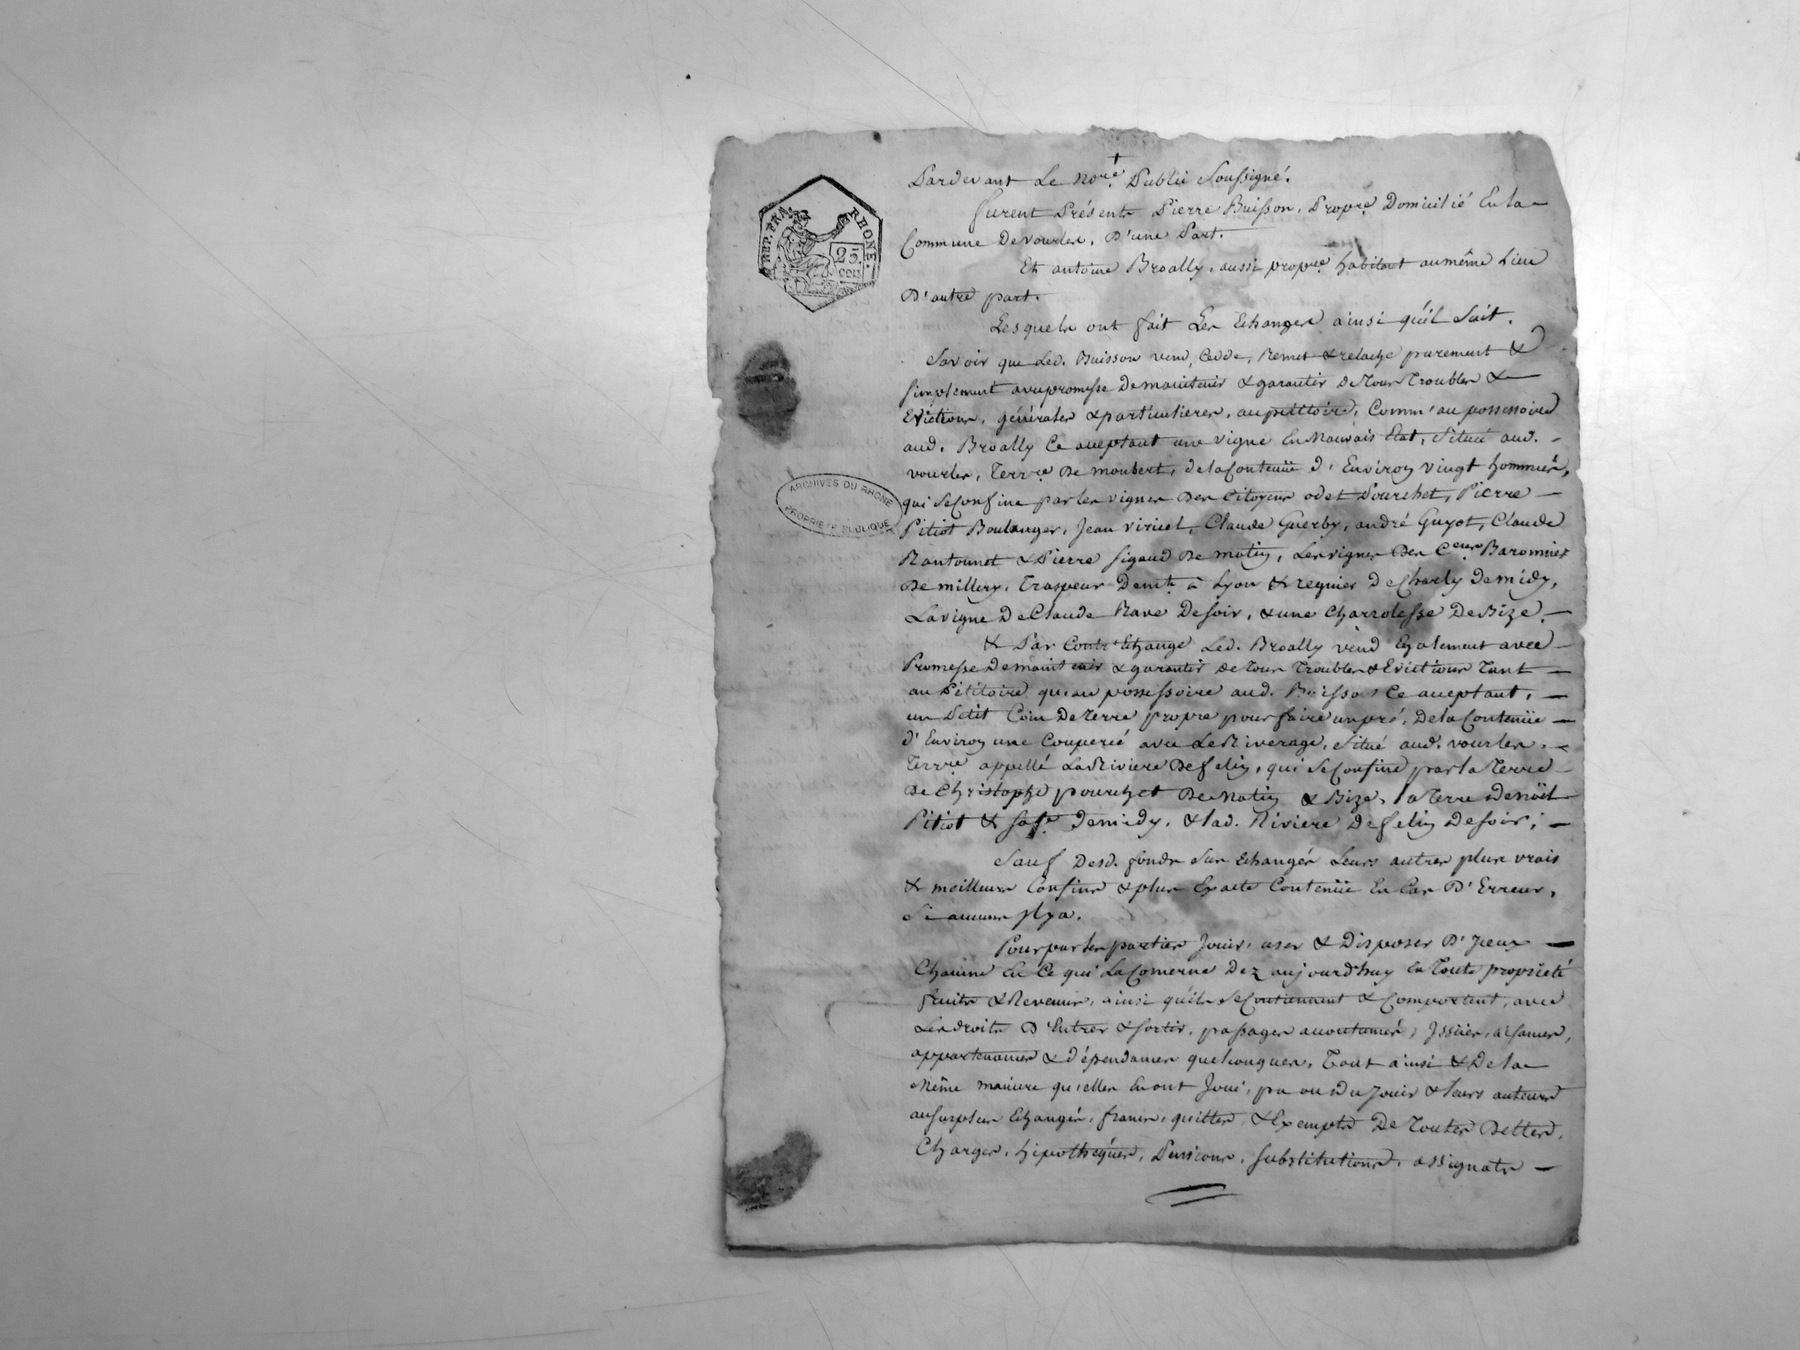 RÉP. FRA. RHONE.
25. cen.
ARCHIVES DU RHONE
PROPRIÉTÉ PUBLIQUE
Pardevant Le No.re Public Soussigné.
furent Présents Pierre Buisson, Propre. Domicilié En la
Commune De vourles, D'une Part.
Et antoine Broally, aussi propre. habitant au même Lieu
D'autre part.
Lesquels ont fait Les Echanges ainsi qu'il Suit.
Savoir que Led. Buisson vend, Cede, Remet & relache purement &
simplement avec promesse De maintenir & garantir De Tous Troubles &
Evictions, générales & particulieres, au petitoire, Comm'au possessoire
aud. Broally Ce acceptant une vigne En Mauvais Etat, Située aud.
vourles, Terr.re De monbert, de la Contenüe d'Environ vingt hommées,
qui Se Confine par les vignes Des Citoyens odet Pourchet, Pierre
Pitiot Boulanger, Jean viricel, Claude Guerby, andré Guyot, Claude
Rantonnet & Pierre sigaud De matin, Les vignes Des C.ens Baronnier
De millery, Traspeur Demt. à Lyon & regnier De Charly De midy,
La vigne De Claude Rave De soir, & une Charrolesse De Bize.
& Par Contr'Echange Led. Broally vend Egalement avec
Promesse De maintenir & garantir De Tous Troubles & Evictions Tant
au Pétitoire qu'au possessoire aud. Buisson Ce acceptant,
un Petit Coin De Terre propre pour faire un pré, De la Contenüe
d'Environ une Couperée avec Le Riverage, Situé aud. vourles,
Terr.re appellé La Riviere De felin, qui Se Confine par la Terre
De Christophe pourchet De Matin & Bize, la Terre De noël
Pitiot & sa fe. De midy, & lad. Riviere De felin De soir;
Sauf Desd. fonds Sus Echangés Leurs autres plus vrais
& meilleurs Confins & plus Exacte Contenüe En Cas D'Erreur,
Si aucune Il y a.
Pour par les parties Jouir, user & Disposer D'Iceux
Chacune En Ce qui La Concerne Dez aujourd'huy En Toute propriété
fruits & Revenus, ainsi qu'ils Se Contiennent & Comportent, avec
Les droits D'Entrer & sortir, passages accoutumés, Issües, aisances,
appartenances & dépendances quelconques, Tout ainsi & De la
Même maniere qu'elles En ont Joui, pu ou Du Jouir & leurs auteurs
au surplus Echangés, francs, quittes & Exempts De Toutes Dettes,
Charges, hipothéques, Pensions, substitutions, assignats